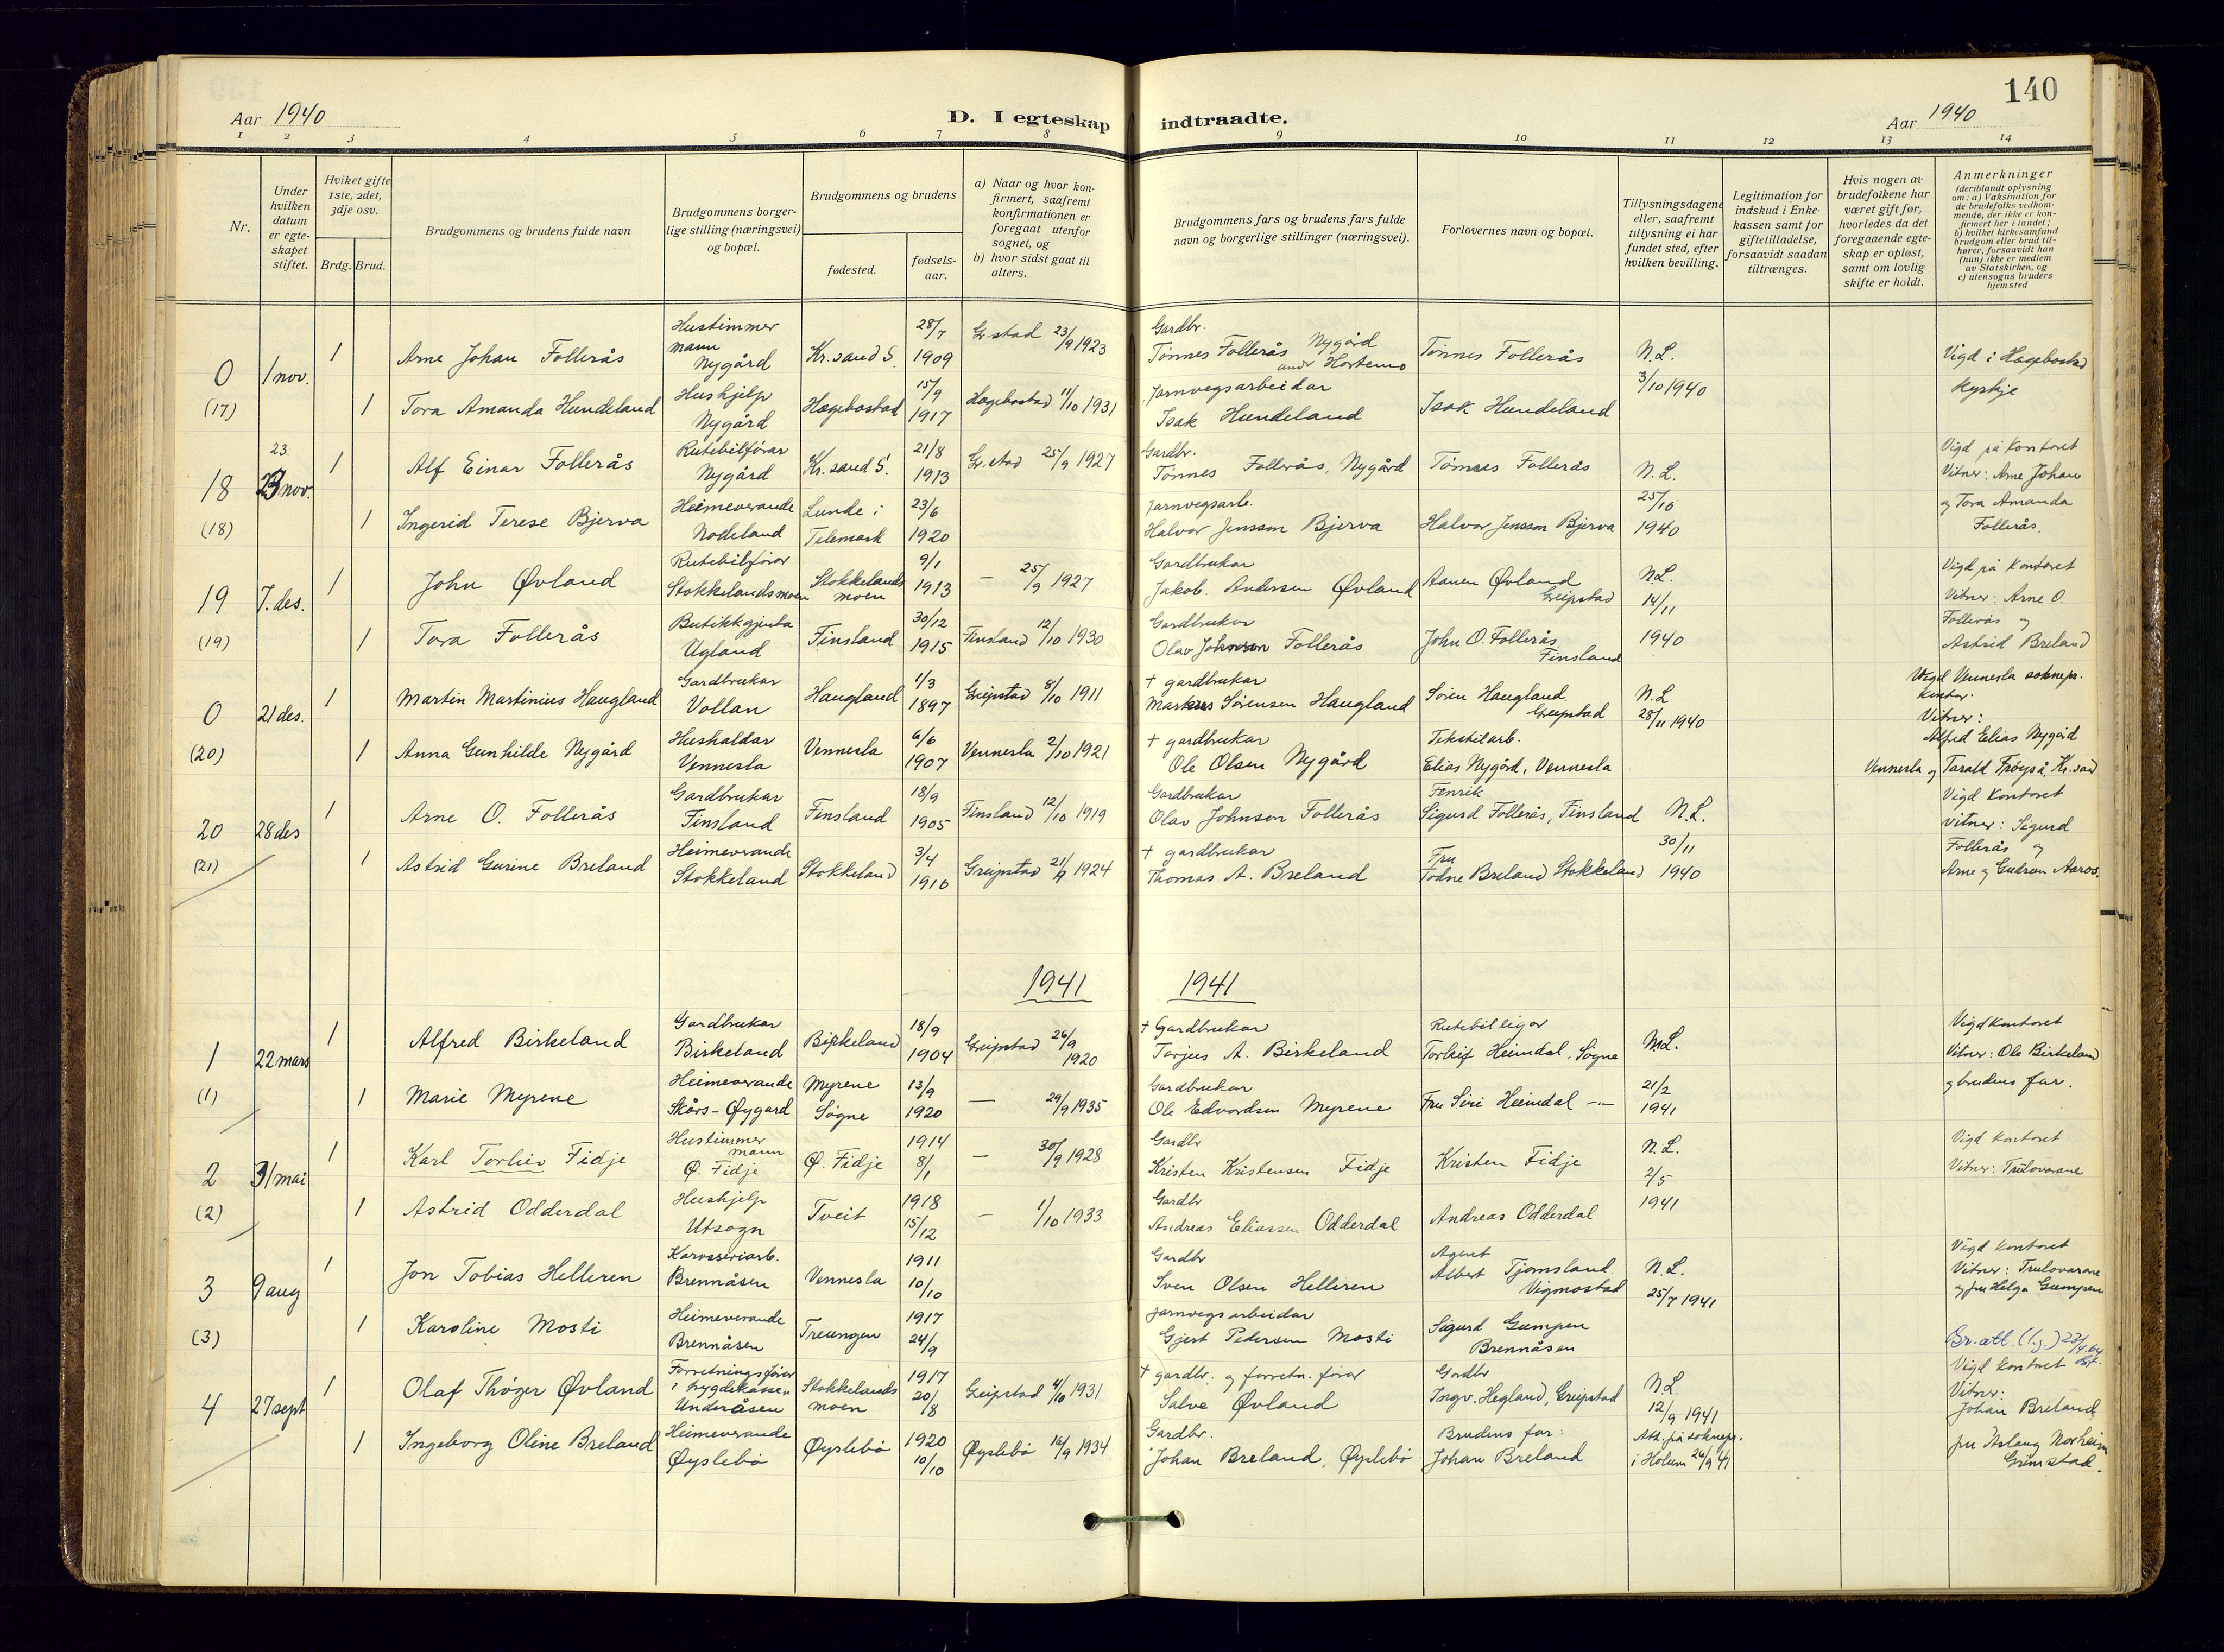 140
Aar 1940
D. I egteskap indtraadte.
Aar 1940
1 2 3 4 5 6 7 8 9 10 11 12 13 14
Nr.
Under
hvilken
datum
er egte-
skapet
stiftet.
Hviket gifte
1ste, 2det,
3dje osv.
Brdg. Brud.
Brudgommens og brudens fulde navn
Brudgommens borger-
lige stilling (næringsvei)
og bopæl.
Brudgommens og brudens
fødested.
fødsels-
aar.
a) Naar og hvor kon-
firmert, saafremt
konfirmationen er
foregaat utenfor
sognet, og
b) hvor sidst gaat til
alters.
Brudgommens fars og brudens fars fulde
navn og borgerlige stillinger (næringsvei).
Forlovernes navn og bopæl.
Tillysningsdagene
eller, saafremt
tillysning ei har
fundet sted, efter
hvilken bevilling.
Legitimation for
indskud i Enke-
kassen samt for
giftetilladelse,
forsaavidt saadan
tiltrænges.
Hvis nogen av
brudefolkene har
været gift før,
hvorledes da det
foregaaende egte-
skap er opløst,
samt om lovlig
skifte er holdt.
Anmerkninger
(deriblandt oplysning
om: a) Vaksination for
de brudefolks vedkom-
mende, der ikke er kon-
firmert her i landet;
b) hvilket kirkesamfund
brudgom eller brud til-
hører, forsaavidt han
(hun) ikke er medlem
av Statskirken, og
c) utensogns bruders
hjemsted
0 (17) 1 nov.
1 Arne Johan Follerås
Hustimmer
mann
Nygård
Kr.sand S.
28/7
1909
Gr.stad 23/9 1923
Gardbr.
Tönnes Follerås Nygård
Hortemo
Tönnes Follerås
N.L.
3/10 1940
Vigd i Hægebostad
Kyrkje
1 Tora Amanda Hundeland
Hushjelp
Nygård
Hægebostad
15/9
1917
Hægebostad 11/10 1931
Jarnvegsarbeidar
Isak Hundeland
Isak Hundeland
18 (18) 23
23 nov.
1 Alf Einar Follerås
Rutebilförar
Nygård
Kr.sand S.
21/8
1913
Gr.stad 25/9 1927
Gardbr.
Tönnes Follerås, Nygård
Tönnes Follerås
N.L.
25/10
1940
Vigd på kontoret
Vitner: Arne Johan
og Tora Amanda
Follerås.
1 Ingerid Terese Bjerva
Heimeverande
Nodeland
Lunde i
Telemark
23/6
1920
Jarnvegsarb.
Halvor Jensson Bjerva
Halvor Jensson Bjerva
19 (19) 7. des.
1 John Øvland
Rutebilförar
Stokkelandsmoen
Stokkelands
moen
9/1
1913
— 25/9 1927
Gardbrukar
Jakob. Andersen Øvland
Aanen Øvland
Greipstad
N.L.
14/11
1940
Vigd på kontoret
Vitner: Arne O.
Follerås og
Astrid Breland
1 Tora Follerås
Butikkgjenta
Ugland
Finsland
30/12
1915
Finsland 12/10 1930
Gardbrukar
Olav Johnson Follerås
John O. Follerås
Finsland
0 (20) 21 des.
1 Martin Martinius Haugland
Gardbrukar
Vollan
Haugland
1/3
1897
Greipstad 8/10 1911
+ gardbrukar
Markus Sörensen Haugland
Sören Haugland
Greipstad
N.L
28/11 1940
Vigd Vennesla soknepr.
kontor.
Vitner:
Alfred Elias Nygård
Vennesla og Tarald Frøyså, Kr.sand
1 Anna Gunhilde Nygård
Hushaldar
Vennesla
Vennesla
6/6
1907
Vennesla 2/10 1921
+ gardbrukar
Ole Olsen Nygård
Tekstilarb.
Elias Nygård, Vennesla
20 (21) 28 des
1 Arne O. Follerås
Gardbrukar
Finsland
Finsland
18/9
1905
Finsland 12/10 1919
Gardbrukar
Olav Johnson Follerås
Fenrik
Sigurd Follerås, Finsland
N.L.
30/11
1940
Vigd kontoret
Vitner: Sigurd
Follerås og
Arne og Gudrun Aaros.
1 Astrid Gurine Breland
Heimeverande
Stokkeland
Stokkeland
3/4
1910
Greipstad 21/9 1924
+ gardbrukar
Thomas A. Breland
Fru
Todne Breland Stokkeland
1941 1941
1 (1) 22 mars
1 Alfred Birkeland
Gardbrukar
Birkeland
Birkeland
18/9
1904
Greipstad 26/9
1920
+ Gardbrukar
Torjus A. Birkeland
Rutebileigar
Torleif Heimdal, Søgne
N.L.
21/2
1941
Vigd kontoret
Vitner: Ole Birkeland
og brudens far.
1 Marie Myrene
Heimeverande
Skårs-Øygard
Myrene
Søgne
13/9
1920
— 29/9 1935
Gardbrukar
Ole Edvardsen Myrene
Fru Siri Heimdal —"—
2 (2) 31 mai
1 Karl Torleiv Fidje
Hustimmer
mann
Ø. Fidje
Ø. Fidje
1914
8/1
— 30/9 1928
Gardbr
Kristen Kristensen Fidje
Kristen Fidje
N.L.
2/5
1941
Vigd kontoret
Vitner: Trulovarane
1 Astrid Odderdal
Hushjelp
Utsogn
Tveit
1918
15/12
— 1/10 1933
Gardbr
Andreas Eliassen Odderdal
Andreas Odderdal
3 (3) 9 aug
1 Jon Tobias Helleren
Karosseriarb.
Brennåsen
Vennesla
1911
10/10
Gardbr
Sven Olsen Helleren
Agent
Albert Tjomsland
Vigmostad
N.L.
25/7 1941
Vigd kontoret
Vitner: Trulovarane
og fru Helga Gumpen
1 Karoline Mosti
Heimeverande
Brennåsen
Treungen
1917
24/9
jarnvegsarbeidar
Gjert Pedersen Mosti
Sigurd Gumpen
Brennåsen
Br. att. (l.g.)
4 (4) 27 sept
1 Olaf Thóger Øvland
Forretningsförer
i trygdekassen
Underåsen
Stokkelands
moen
1917
20/8
Greipstad 4/10 1931
+ gardbr. og forretn. förar
Salve Øvland
Gardbr
Ingv. Hegland, Greipstad
N.L.
12/9 1941
Att. på soknepr.
i Holum 26/9 41
Vigd kontoret
Vitner:
Johan Breland
fru Aslaug Norheim
Grimstad.
1 Ingeborg Oline Breland
Heimeverande
Øyslebö
Øyslebö
1920
10/10
Øyslebö 16/9 1934
Gardbr.
Johan Breland, Øyslebö
Brudens far:
Johan Breland